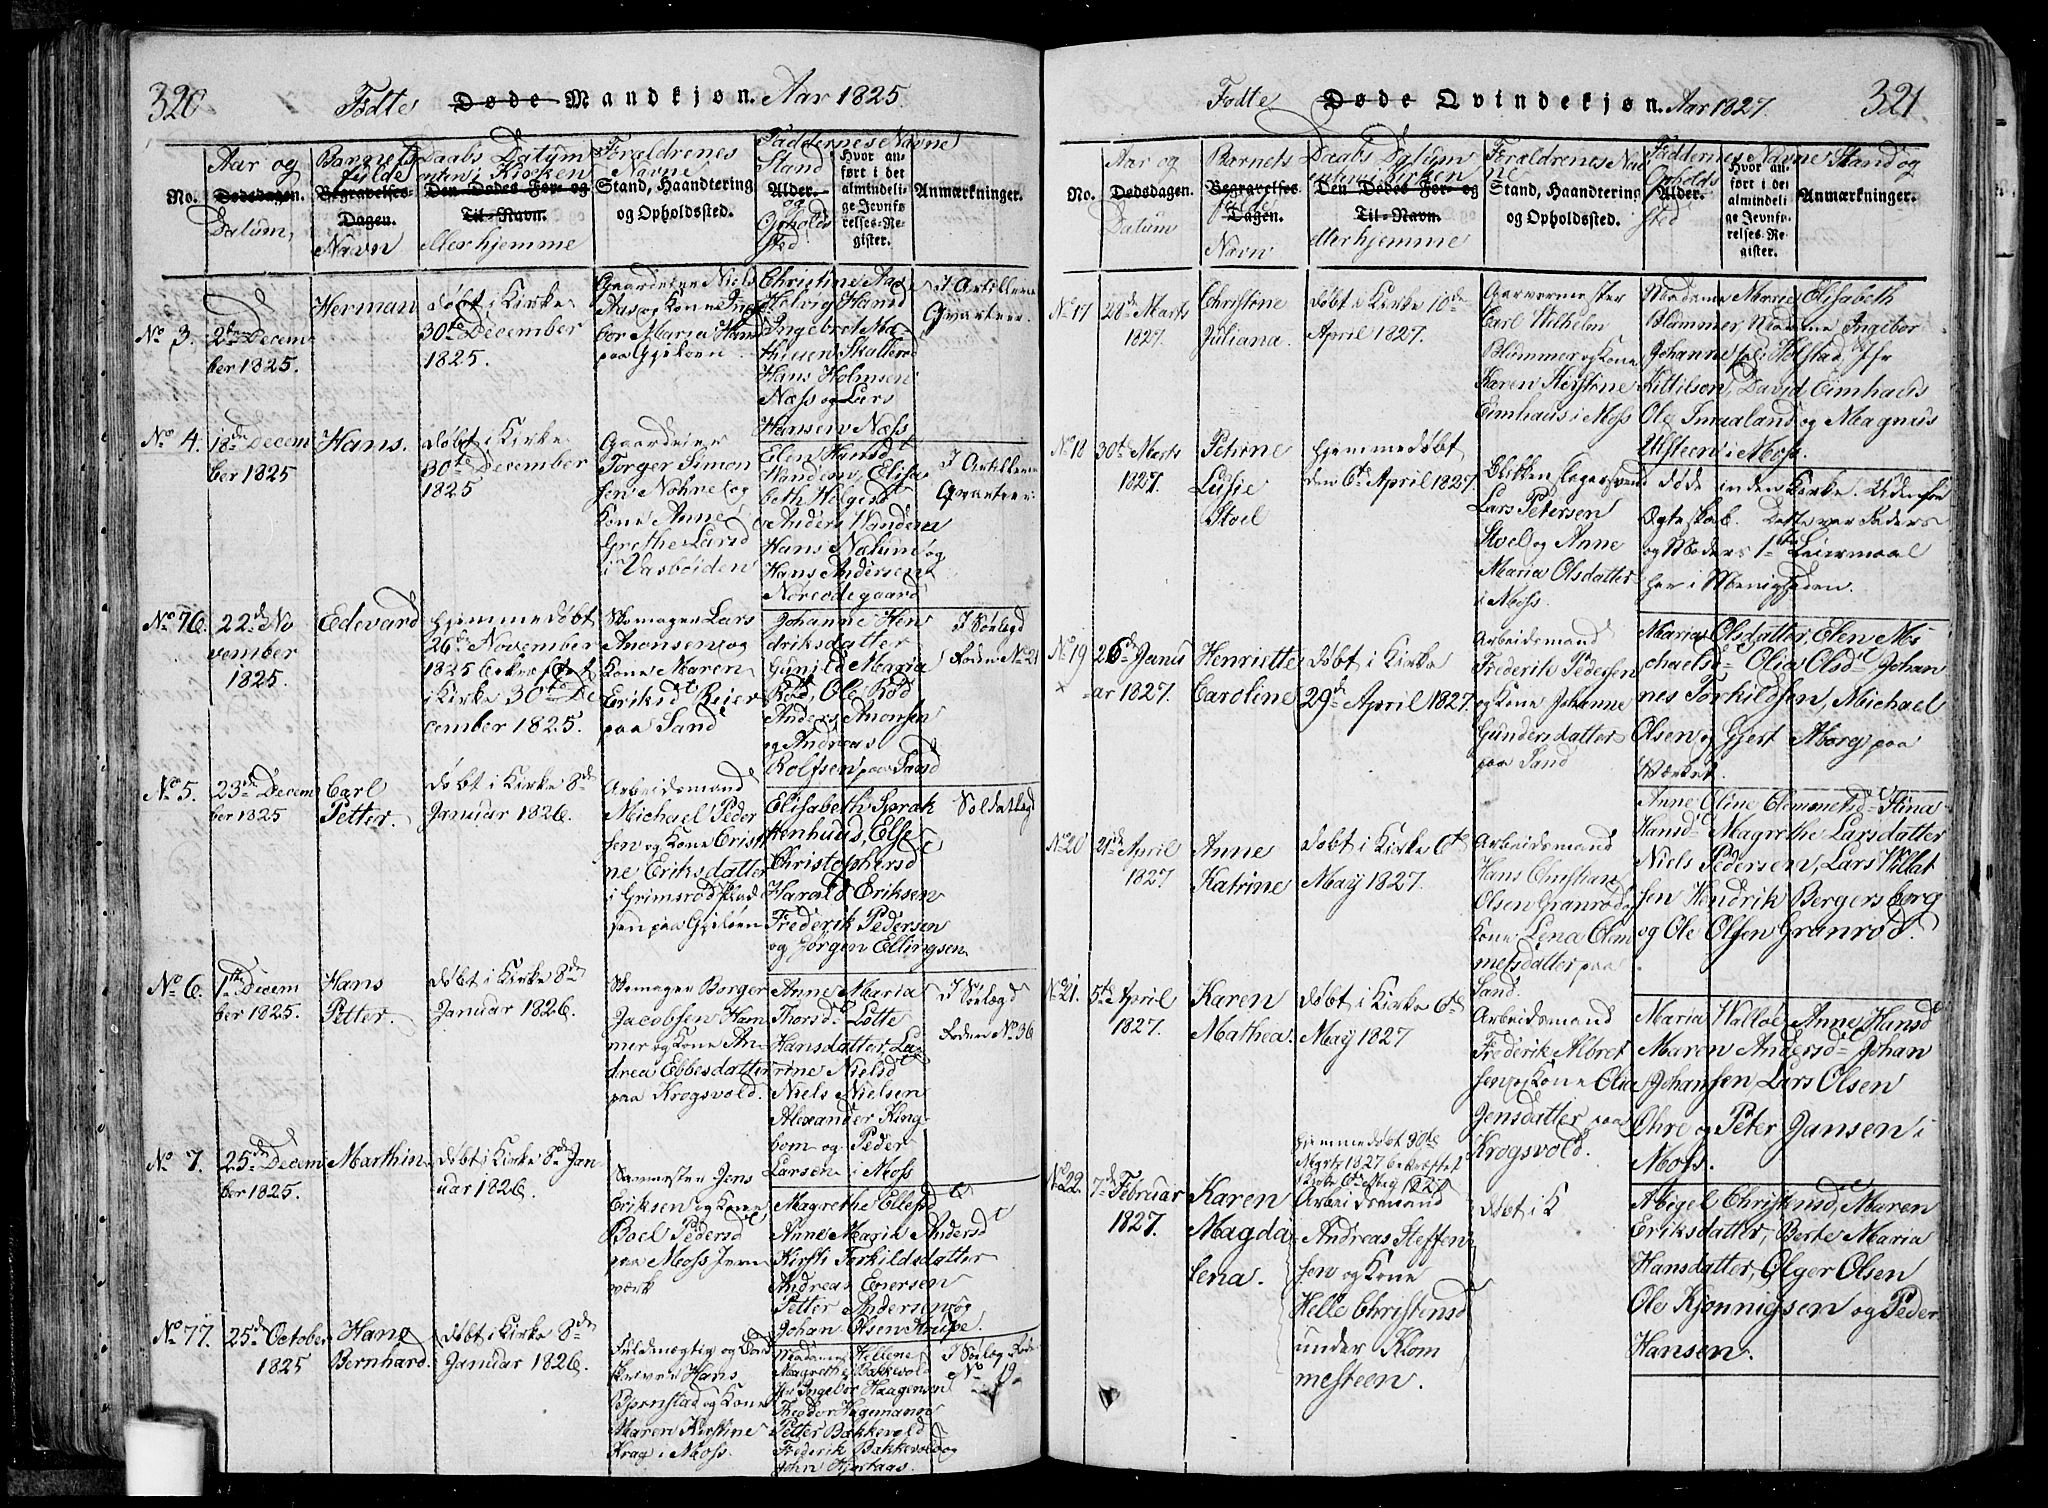 320
Fødte Døde Mandkjøn. Aar 1825.
No.
Aar og
Dødsdagen.
Datum,
Barnets
fulde
Begravelses-
Dagen.
Navn
Daabs Datum
enten i Kirken
Den Dødes For- og
Til-Navn.
eller hjemme
Forældrenes
Navne
Stand, Haandtering
og Opholdssted.
Faddernes Navne
Stand
Alder.
og
Opholds
sted
Hvor an-
ført i det
almindeli-
ge Jevnfø-
relses-Re-
gister.
Anmærkninger.
No 3.
2den Decem
ber 1825.
Herman
døbt i Kirke
30te December
1825.
Gaardeier Niels
Aas og Kone Inge
bor Maria Hansd
paa Gjeløen
Christine Aas
Helvig Hansd
Ingebret Ma-
thisen Skallerud
Hans Holmsen
Næss og Lars
Hansen Næss
I Artilleri
Qvarteer.
No 4.
18de Decem
ber 1825
Hans.
døbt i Kirke
30te December
1825
Gaardeier
Torger Simon
sen Nøhre og
Kone Anne
Grethe Larsd
i Vasbøiden
Elen Hansd
Vanden, Elisa
beth Helgesd
Anders Vanden
Hans Nøkum og
Hans Andersen
Nøreødegaard
I Artilleri
Qvarteer.
No 76.
22de No
vember
1825.
Edevard
hjemmedøbt
26de November
1825 bekræftet
i Kirke 30te De
cember 1825.
Skomager Lars
Anonsen og
Kone Maren
Eriksd Reier
paa Sand
Johanne Hen
driksdatter
Gunild Maria
Rød, Ole Rød
Anders Anonsen
og Andreas
Rolfsen paa Sand
I Søelægd
Roden No 21
No 5.
23de Decem
ber 1825
Carl
Petter.
døbt i Kirke 8de
Januar 1826.
Arbeidsmand
Michael Peder
sen og Kone Cristi
ne Eriksdatter
i Grimsrød Plad
sen paa Gjeløen
Elisabeth Sprak
henhuus, Else
Christophersd
Harald Eriksen
Frederik Pedersen
og Jørgen Ellingsen
Soldatlægd
No 6.
1te Decem
ber 1825.
Hans
Petter.
døbt i Kirke 8de
Januar 1826.
Skomager Borger
Jacobsen Ham
mer og Kone An
drea Ebbesdatter
paa Krogsvold.
Anne Maria
Thorsd Lotte
Hansdatter, La
rine Nielsd
Niels Nielsen
Alexander King
bom og Peder
Larsen i Moss
I Søelægd
Roden No 36
No 7.
25de Decem
ber 1825.
Marthin
døbt i Kirke 8de Jan
uar 1826.
Jens
Eriksen og Kone
Boel Pedersd
paa Moss Jern
værk
Magrethe Ellefsd
Anne Marie Andersd
Kirsti Torkildsdatter
Andreas Enersen
Petter Andersen og
Johan Olsen Strupe.
No 77.
25de October
1825
Hans
Bernhard.
døbt i Kirke 8de
Januar 1826.
Fuldmægtig og
Hans
Bjørnstad og Kone
Maren Kirstine
Krag i Moss.
Madame Hellene
Magrethe Bakkevold
Jfr Ingebor Haagensen
Theodor Hagemann
Petter Bakkevold
Frederik Bakkevold og
John Hjortaas.
I Søelæg Rode
No 19.
321
Fødte Døde Qvindekjøn. Aar 1827.
No.
Aar og
Dødsdagen.
Datum
Barnets
Begravelses
fulde
Dagen.
Navn
Daabs Datum
enten i Kirken
Den Dødes For- og
Til-Navn.
eller hjemme
Forældrenes Nav
ne
Stand, Haandtering
og Opholdssted.
Faddernes Navne Stand og
Opholds
Alder.
sted
Hvor an-
ført i det
almindeli
ge Jevnfø-
relses-Re-
gister.
Anmærkninger.
No 17
28de Marts
1827.
Christine
Juliana.
døbt i Kirke 16de
April 1827.
Garvermester
Carl Wilhelm
Blommer og Kone
Karen Kirstine
Eimhaus i Moss
Madame Marie Elisabeth
Blommer Madame Ingebor
Johanne Holstad, Jfr
Kittilsen, David Eimhaus
Ole Smaaland og Magnus
Ulsteen i Moss.
No 18
30te Marts
1827.
Petrine
Lusie
Stoel
hjemmedøbt
den 6te April 1827.
Blokkeslagersvend
Lars Petersen
Stoel og Anne
Maria Olsdatter
i Moss.
døde inden Kirke. Udenfor
Egteskab. Dette var Faders
og Moders 1te Leiermaal
her i Menigheden.
No 19
×
26de Janu
ar 1827.
Henriette
Caroline
døbt i Kirke
29de April 1827.
Arbeidsmand
Frederik Pedersen
og Kone Johanne
Gundersdatter
paa Sand
Maria Olsdatter, Elen Mi
chaelsd Olia Olsd Johan
nes Torkildsen, Michael
Olsen og Gjert Aborg paa
Værket.
No 20
21de April
1827
Anne
Katrine
døbt i Kirke 6te
May 1827.
Arbeidsmand
Hans Christian
Olsen Granrød og
Kone Lena Clem
mesdatter paa
Sand.
Anne Oline Clemmetsd Stina
Hansd Magrethe Larsdatter
Niels Pedersen, Lars Willat
sen Hendrik Bergersborg
og Ole Olsen Granrød.
No 21.
5te April
1827.
Karen
Mathea.
døbt i Kirke 6te
May 1827
Arbeidsmand
Frederik Albret
sen og Kone Olia
Jensdatter paa
Krogsvold.
Maria Walløe Anne Hansd
Maren Andersd Johan
Johansen Lars Olsen
Ohre og Peter Jansen i
Moss.
No 22.
7de Februar
1827.
Karen
Magda
lena.
hjemmedøbt 30te
Marts 1827 bekræftet
i Kirke 6te May 1827
Arbeidsmand
Andreas Steffen
sen og Kone
Helle Christensd
under Klom
mesteen.
døbt i K
Abigel Christensd, Maren
Eriksdatter, Berte Maria
Hansdatter, Olger Olsen
Ole Kjønnigsen og Peder
Hansen.